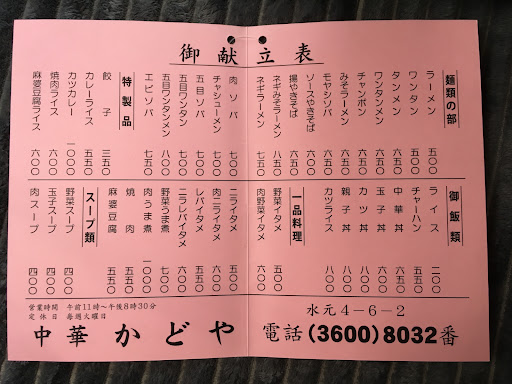 御献立表
麺類の部
ラーメン 五〇〇
ワンタン 五〇〇
タンメン
ワンタンメン
チャンポン
みそラーメン
モヤシソバ
ソースやきそば
揚やきそば
ネギみそラーメン 八五〇
ネギラーメン 七五〇
肉ソバ 七〇〇
チャシューメン 七〇〇
五目ソバ 七〇〇
五目ワンタン 七〇〇
五目ワンタンメン 八〇〇
エビソバ 七五〇
特製品
餃子 三五〇
カレーライス 五五〇
カツカレー 一〇〇〇
焼肉ライス 六〇〇
麻婆豆腐ライス 六〇〇
御飯類
ライス 二〇〇
チャーハン
中華丼
玉子丼
カツ丼 八〇〇
親子丼
カツライス 八〇〇
一品料理
野菜イタメ
肉野菜イタメ 六〇〇
ニライタメ 五〇〇
肉ニライタメ 六〇〇
レバイタメ 五五〇
ニラレバイタメ 六〇〇
野菜うま煮 七〇〇
肉うま煮 一〇〇〇
焼肉
麻婆豆腐 五五〇
スープ類
野菜スープ 四〇〇
玉子スープ 四〇〇
肉スープ 四〇〇
営業時間 午前11時〜午後8時30分
定休日 毎週火曜日
水元4-6-2
中華かどや 電話(3600)8032番